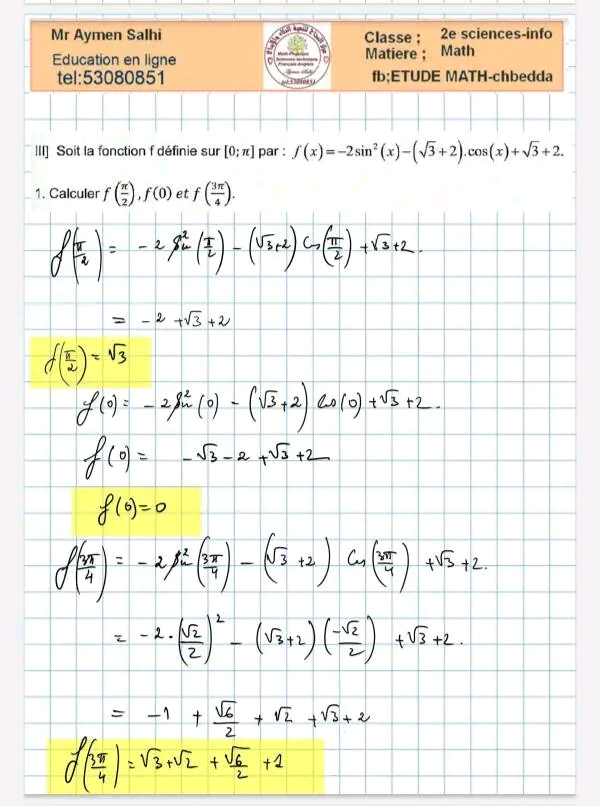 Mr Aymen Salhi
Education en ligne
tel:53080851
Classe ; 2e sciences-info
Matiere ; Math
fb;ETUDE MATH-chbedda
III] Soit la fonction f définie sur [0; π] par : f(x)=−2sin²(x)−(√3+2).cos(x)+√3+2.
1. Calculer f(π/2), f(0) et f(3π/4).
f(π/2) = -2 sin²(π/2) - (√3+2) Cos(π/2) +√3+2.
= -2 +√3+2
f(π/2) = √3
f(0) = -2 sin²(0) - (√3+2) Cos(0) +√3+2.
f(0) = -√3-2+√3+2
f(0)=0
f(3π/4) = -2 sin²(3π/4) - (√3+2) Cos(3π/4) +√3+2.
= -2.(√2/2)² - (√3+2)(-√2/2) +√3+2.
= -1 + √6/2 + √2 +√3+2
f(3π/4) = √3+√2 + √6/2 +1